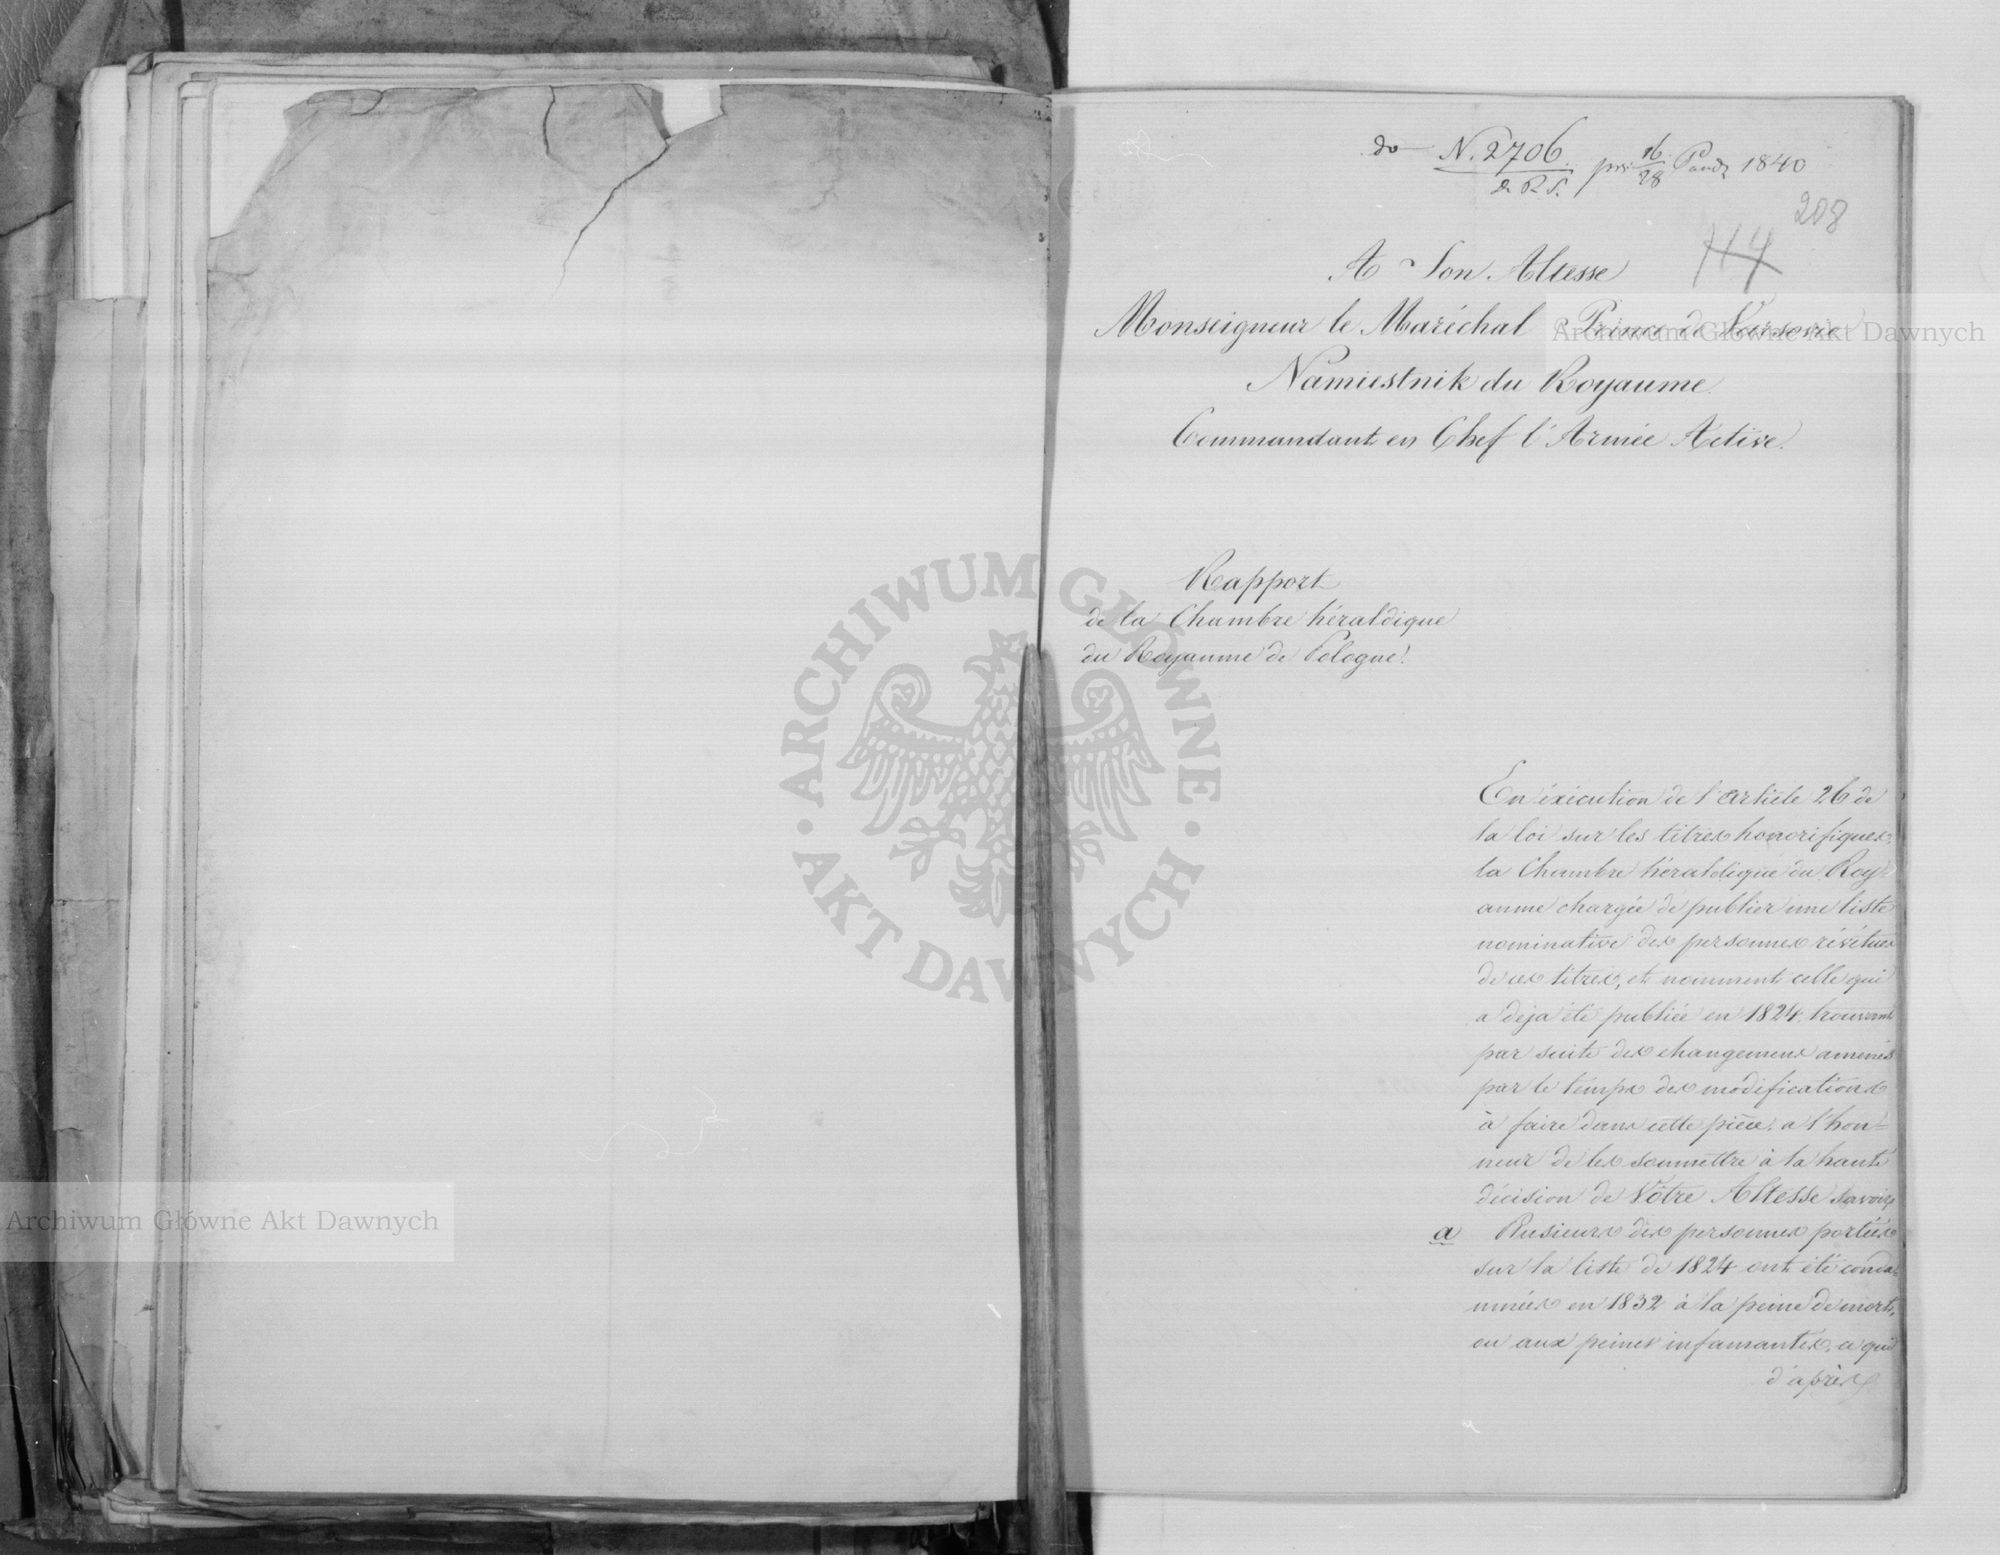 do N. 2706 16 1840
d. R. S. 28
208
114
A Son Altesse
Monseigneur le Maréchal Prince de Varsovie
Namiestnik du Royaume
Commandant en Chef l'Armée Active.
Rapport
de la Chambre héraldique
du Royaume de Pologne.
En éxécution de l'article 26 de
la loi sur les titres honorifiques
la Chambre héraldique du Roy-
aume chargée de publier une liste
nominative des personnes révêtues
de ces titres, et nommant celle qui
a déja été publiée en 1824. trouvant
par suite des changemens amenés
par le temps des modifications
à faire dans cette pièce, a l'hon=
neur de les soumettre à la haute
décision de Vôtre Altesse savoir
a Plusieurs des personnes portées
sur la liste de 1824 ont été conda-
mnées en 1832 à la peine de mort,
ou aux peines infamantes, ce qui
d'après
ARCHIWUM GŁÓWNE AKT DAWNYCH
Archiwum Główne Akt Dawnych
Archiwum Główne Akt Dawnych